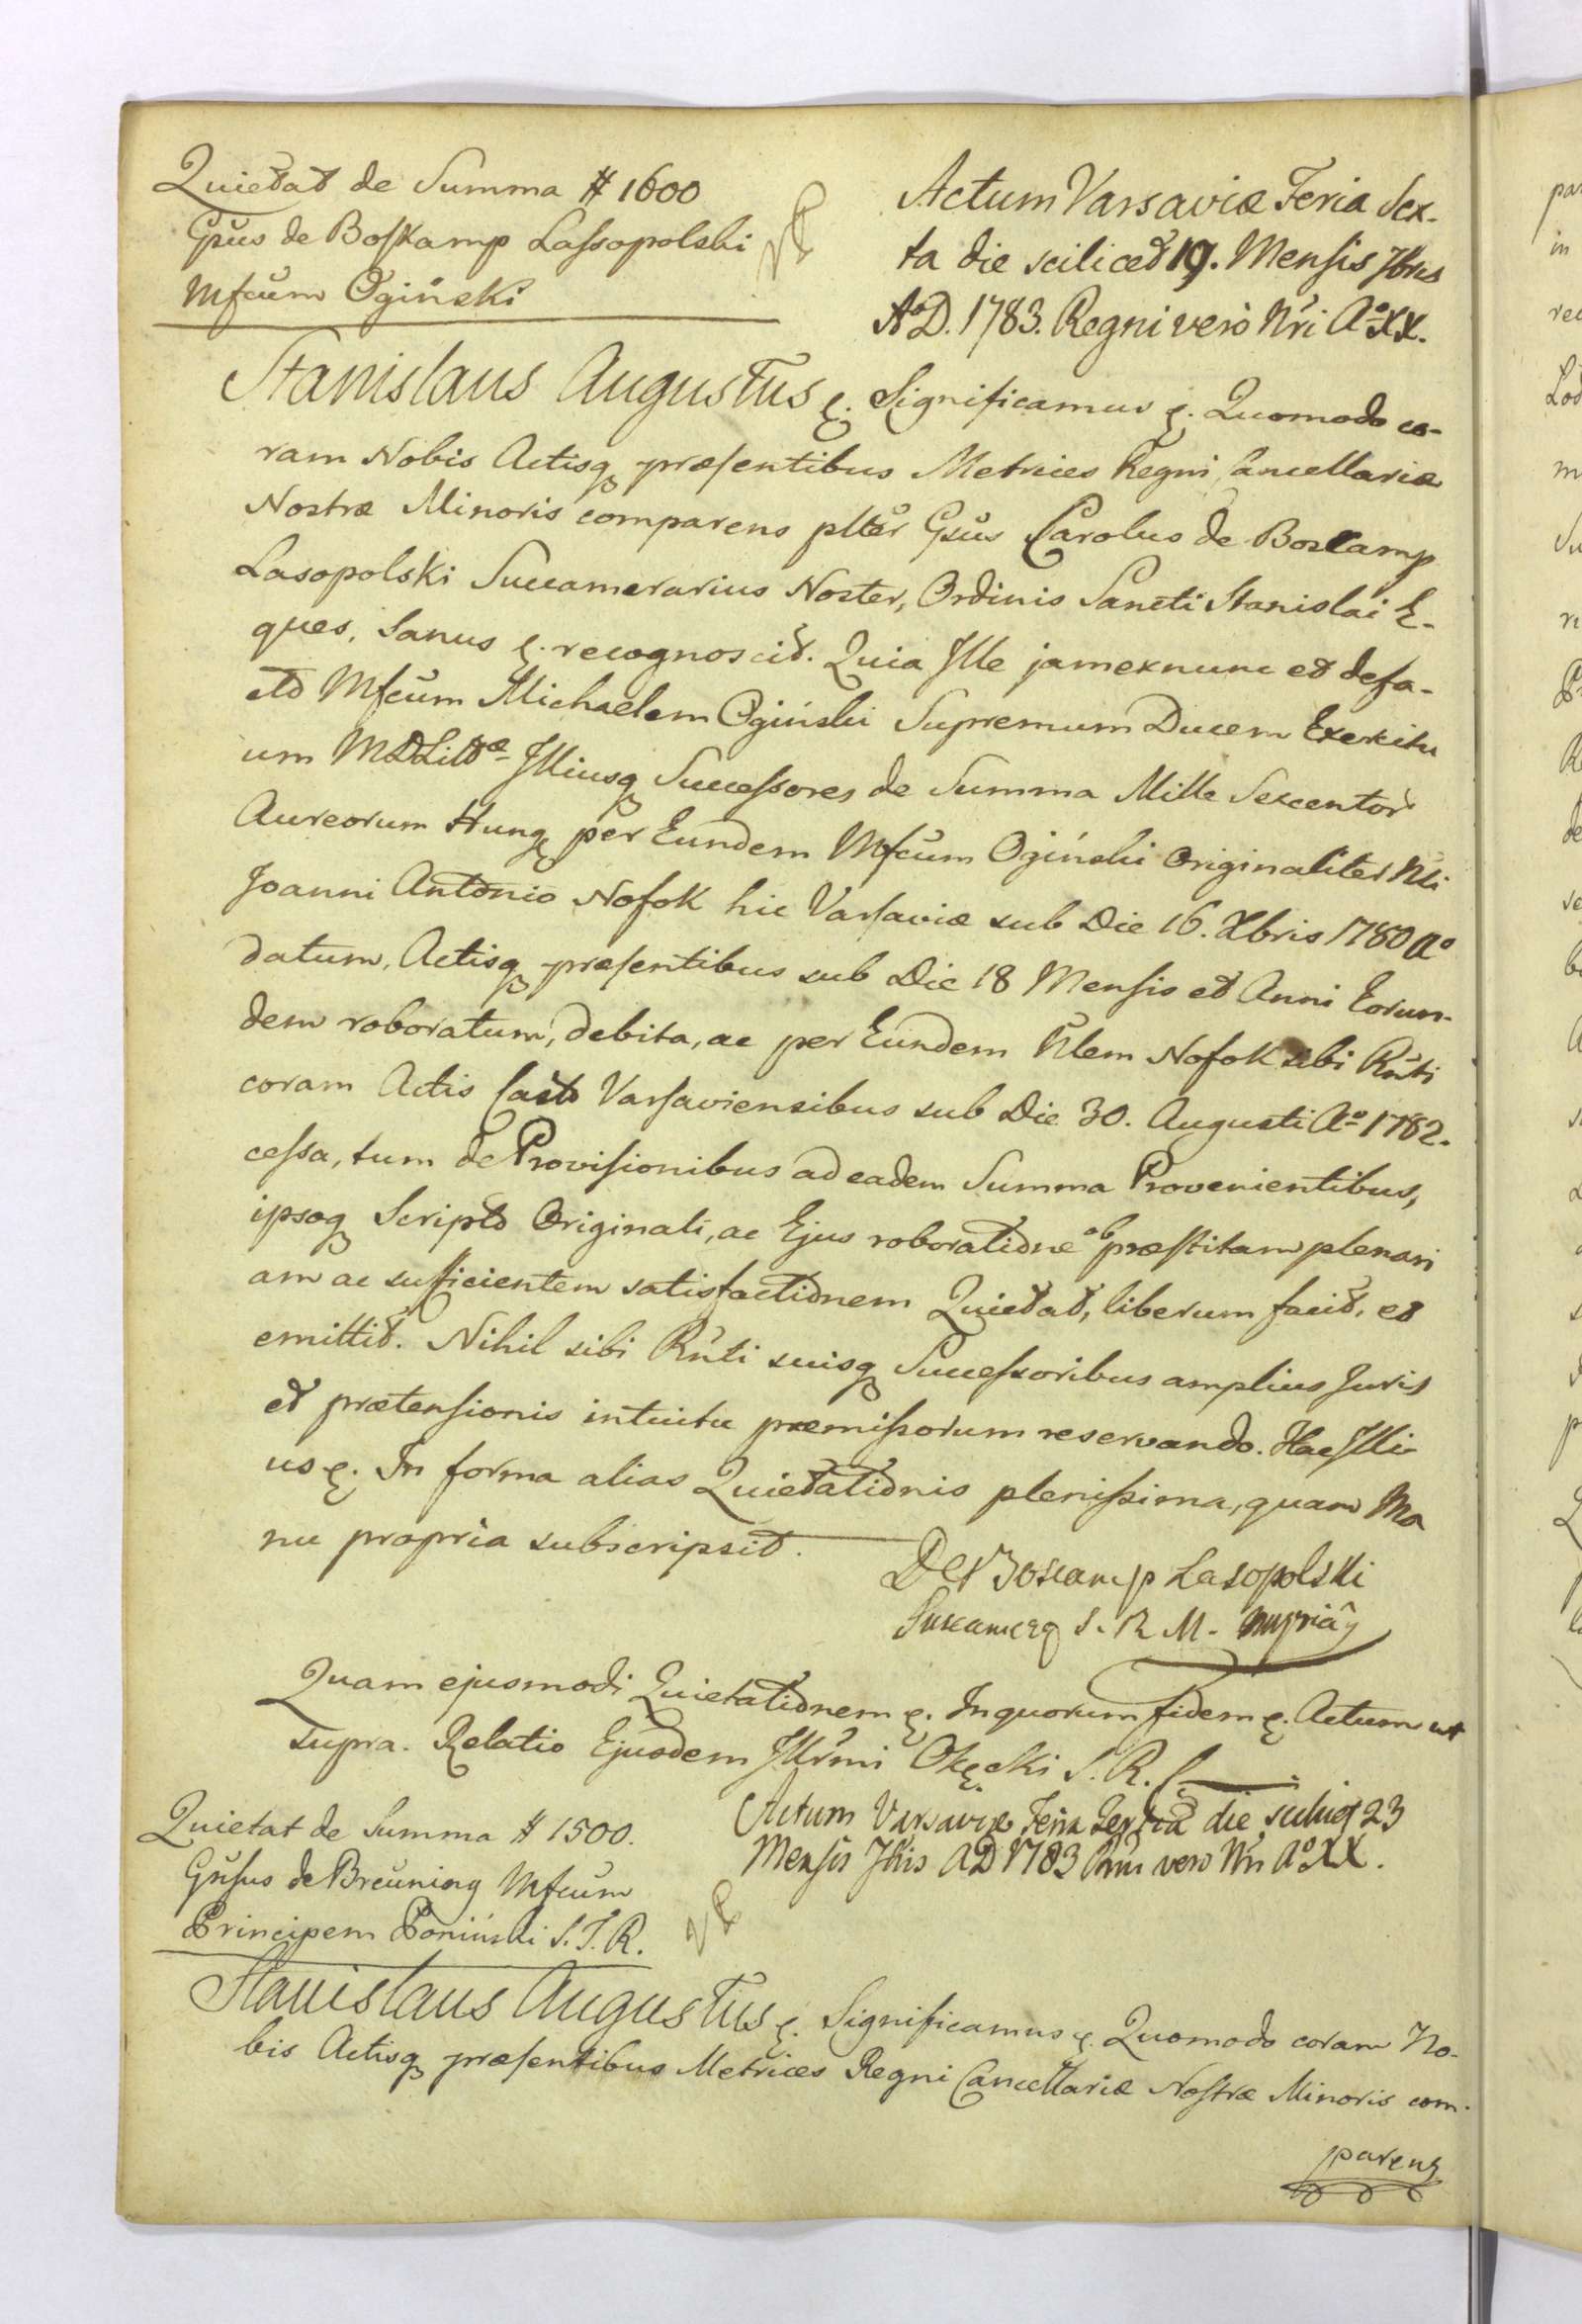 Quietat de Summa # 1600
Gsus de Boskamp Lassopolski
Mfcum Ogiński
Actum Varsaviæ Feria Sex-
ta die scilicet 19. Mensis 7bris
A° D. 1783. Regni verò Nri A° XX.
Stanislaus Augustus &. Significamus &. Quomodo co-
ram Nobis Actisq præsentibus Metrices Regni Cancellariæ
Nostræ Minoris comparens plter Gsus Carolus de Boscamp
Lasopolski Succamerarius Noster, Ordinis Sancti Stanislai E-
ques, Sanus &. recognoscit. Quia Ille jam exnunc et defa-
cto Mfcum Michaelem Ogiński Supremum Ducem Exercitu
um MDLittæ Illiusq Successores de Summa Mille Sexcentor
Aureorum Hung per Eundem Mfcum Ogiński Originaliter Nli
Joanni Antonio Nofok hic Varsaviæ sub Die 16. Xbris 1780 A°
datum, Actisq præsentibus sub Die 18 Mensis et Anni Eorun-
dem roboratum, debita, ac per Eundem Nlem Nofok sibi Rnti
coram Actis Castr Varsaviensibus sub Die 30. Augusti A° 1782.
cessa, tum de Provisionibus ad eadem Summa Provenientibus,
ipsoq Scripto Originali, ac Ejus roboratione ob præstitam plenari
am ac sufficientem satisfactionem Quietat, liberum facit, et
emittit. Nihil sibi Rnti suisq Successoribus amplius Juris
et prætensionis intuitu præmissorum reservando. Hac Illi
us &. In forma alias Quietationis plenissima, quam Ma
nu propria subscripsit.
De Boscamp Lasopolski
Succamerq S. R M. mpria
Quam ejusmodi Quietationem &. In quorum fidem &. Actum ut
supra. Relatio Ejusdem Illrmi Okęcki S. R.
Quietat de Summa # 1500.
Gnsus de Breuning Mfcum
Principem Poniński S. T. R.
Actum Varsaviæ Feria Tertia die scilicet 23
Mensis 7bris AD 1783 Rni vero Nri A° XX.
Stanislaus Augustus &. Significamus &. Quomodo coram No-
bis Actisq præsentibus Metrices Regni Cancellariæ Nostræ Minoris com-
parens